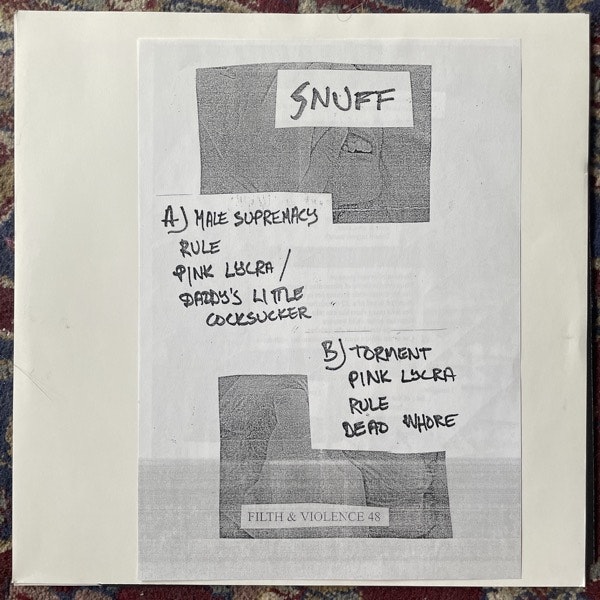 SNUFF
A) MALE SUPREMACY
RULE
PINK LYCRA /
DADDY'S LITTLE
COCKSUCKER
B) TORMENT
PINK LYCRA
RULE
DEAD WHORE
FILTH & VIOLENCE 48